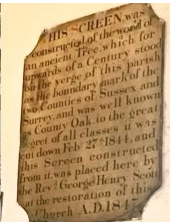 THIS SCREEN, was
constructed of the wood of
an ancient Tree, which for
upwards of a Century stood
on the verge of this parish
as the boundary mark of the
two Counties of Sussex and
Surrey, and was well known
as County Oak, to the great
regret of all classes it was
cut down Feb 27th 1844, and
this Screen constructed
from it, was placed here by
the Revd George Henry Scott
at the restoration of this
Church A.D. 184